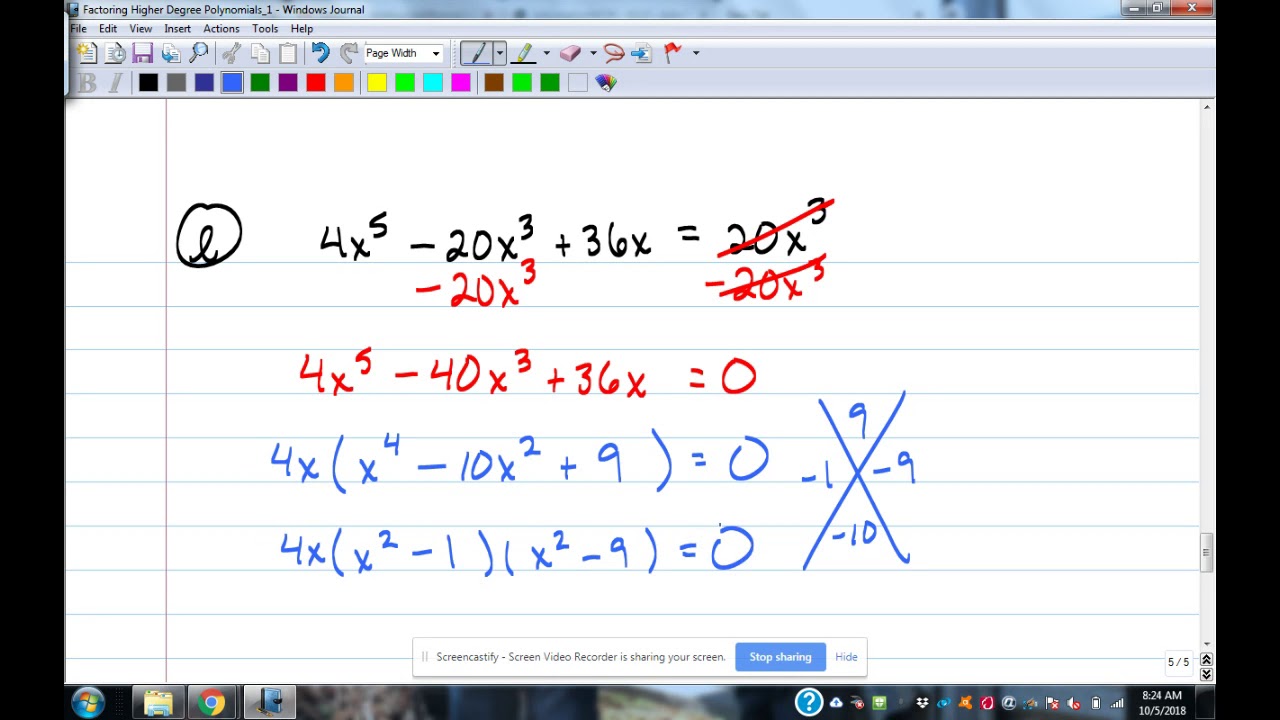 Factoring Higher Degree Polynomials_1 - Windows Journal
File Edit View Insert Actions Tools Help
Page Width
B I
ⓔ 4x⁵ − 20x³ + 36x = 20x³
− 20x³ − 20x³
4x⁵ − 40x³ + 36x = 0
9
4x(x⁴ − 10x² + 9) = 0 −1 −9
−10
4x(x² − 1)(x² − 9) = 0
Screencastify - Screen Video Recorder is sharing your screen. Stop sharing Hide
5 / 5
8:24 AM
10/5/2018